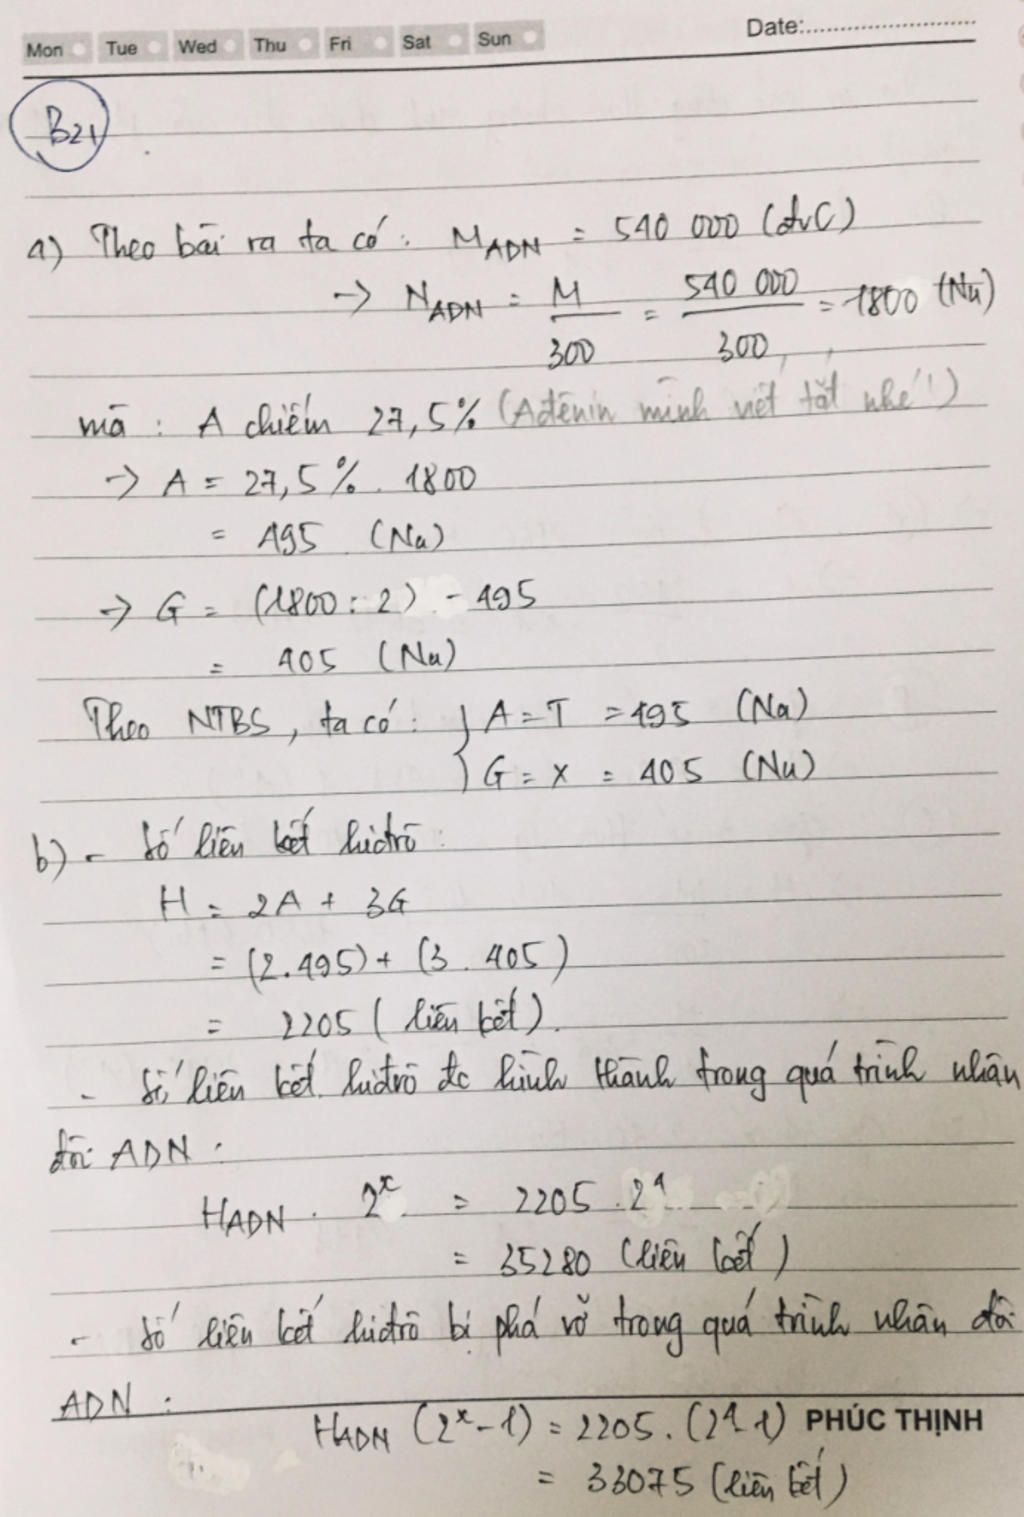 Mon Tue Wed Thu Fri Sat Sun Date:
B21
a) Theo bài ra ta có: MADN = 540 000 (đvC)
→ NADN = M/300 = 540 000/300 = 1800 (Nu)
mà : A chiếm 27,5% (Ađênin mình viết tắt nhé!)
→ A = 27,5% . 1800
= 495 (Nu)
→ G = (1800 : 2) - 495
= 405 (Nu)
Theo NTBS, ta có: { A = T = 495 (Nu)
G = X = 405 (Nu)
b) - Số liên kết hiđrô:
H = 2A + 3G
= (2.495) + (3 . 405)
= 2205 (liên kết).
- Số liên kết hiđrô đc hình thành trong quá trình nhân
đôi ADN :
HADN . 2^x = 2205 . 2^4
= 35280 (liên kết)
- Số liên kết hiđrô bị phá vỡ trong quá trình nhân đôi
ADN :
HADN (2^x - 1) = 2205 . (2^4-1) PHÚC THỊNH
= 33075 (liên kết)